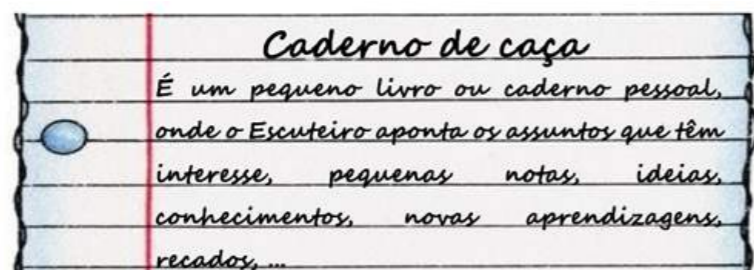 Caderno de caça
É um pequeno livro ou caderno pessoal,
onde o Escuteiro aponta os assuntos que têm
interesse, pequenas notas, ideias,
conhecimentos, novas aprendizagens,
recados, ...